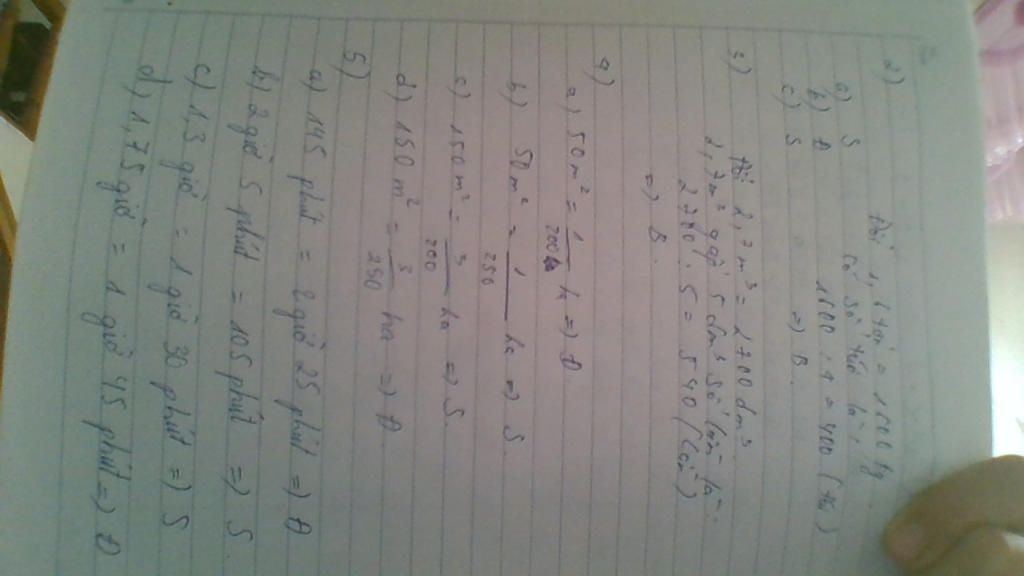 2)
Đổi 1,6 tấn = 1600 kg
a) S
Số bao gạo là:
b) Đ
1600 : 4 = 400 (bao)
c) S
=> B.
3)
Đổi 2,7 m³ = 2700 dm³
2,7m³ gấp 5 dm³ số lần là:
2700 : 5 = 540 (lần)
=> B.
4)
a) 50m² = 1/200 ha => Đ
b) 50m² = 1/250 ha => S
c) 150m² = 3/200 ha => S.
d) 150m² = 3/250 ha => Đ
5)
a) 145 phút = 2 giờ 25 phút => Đ
b) 2 giờ 5 phút = 105 phút => S
c) 1,3 giờ = 1 giờ 30 phút => S
d) 1,75 giờ = 1 giờ 45 phút => Đ